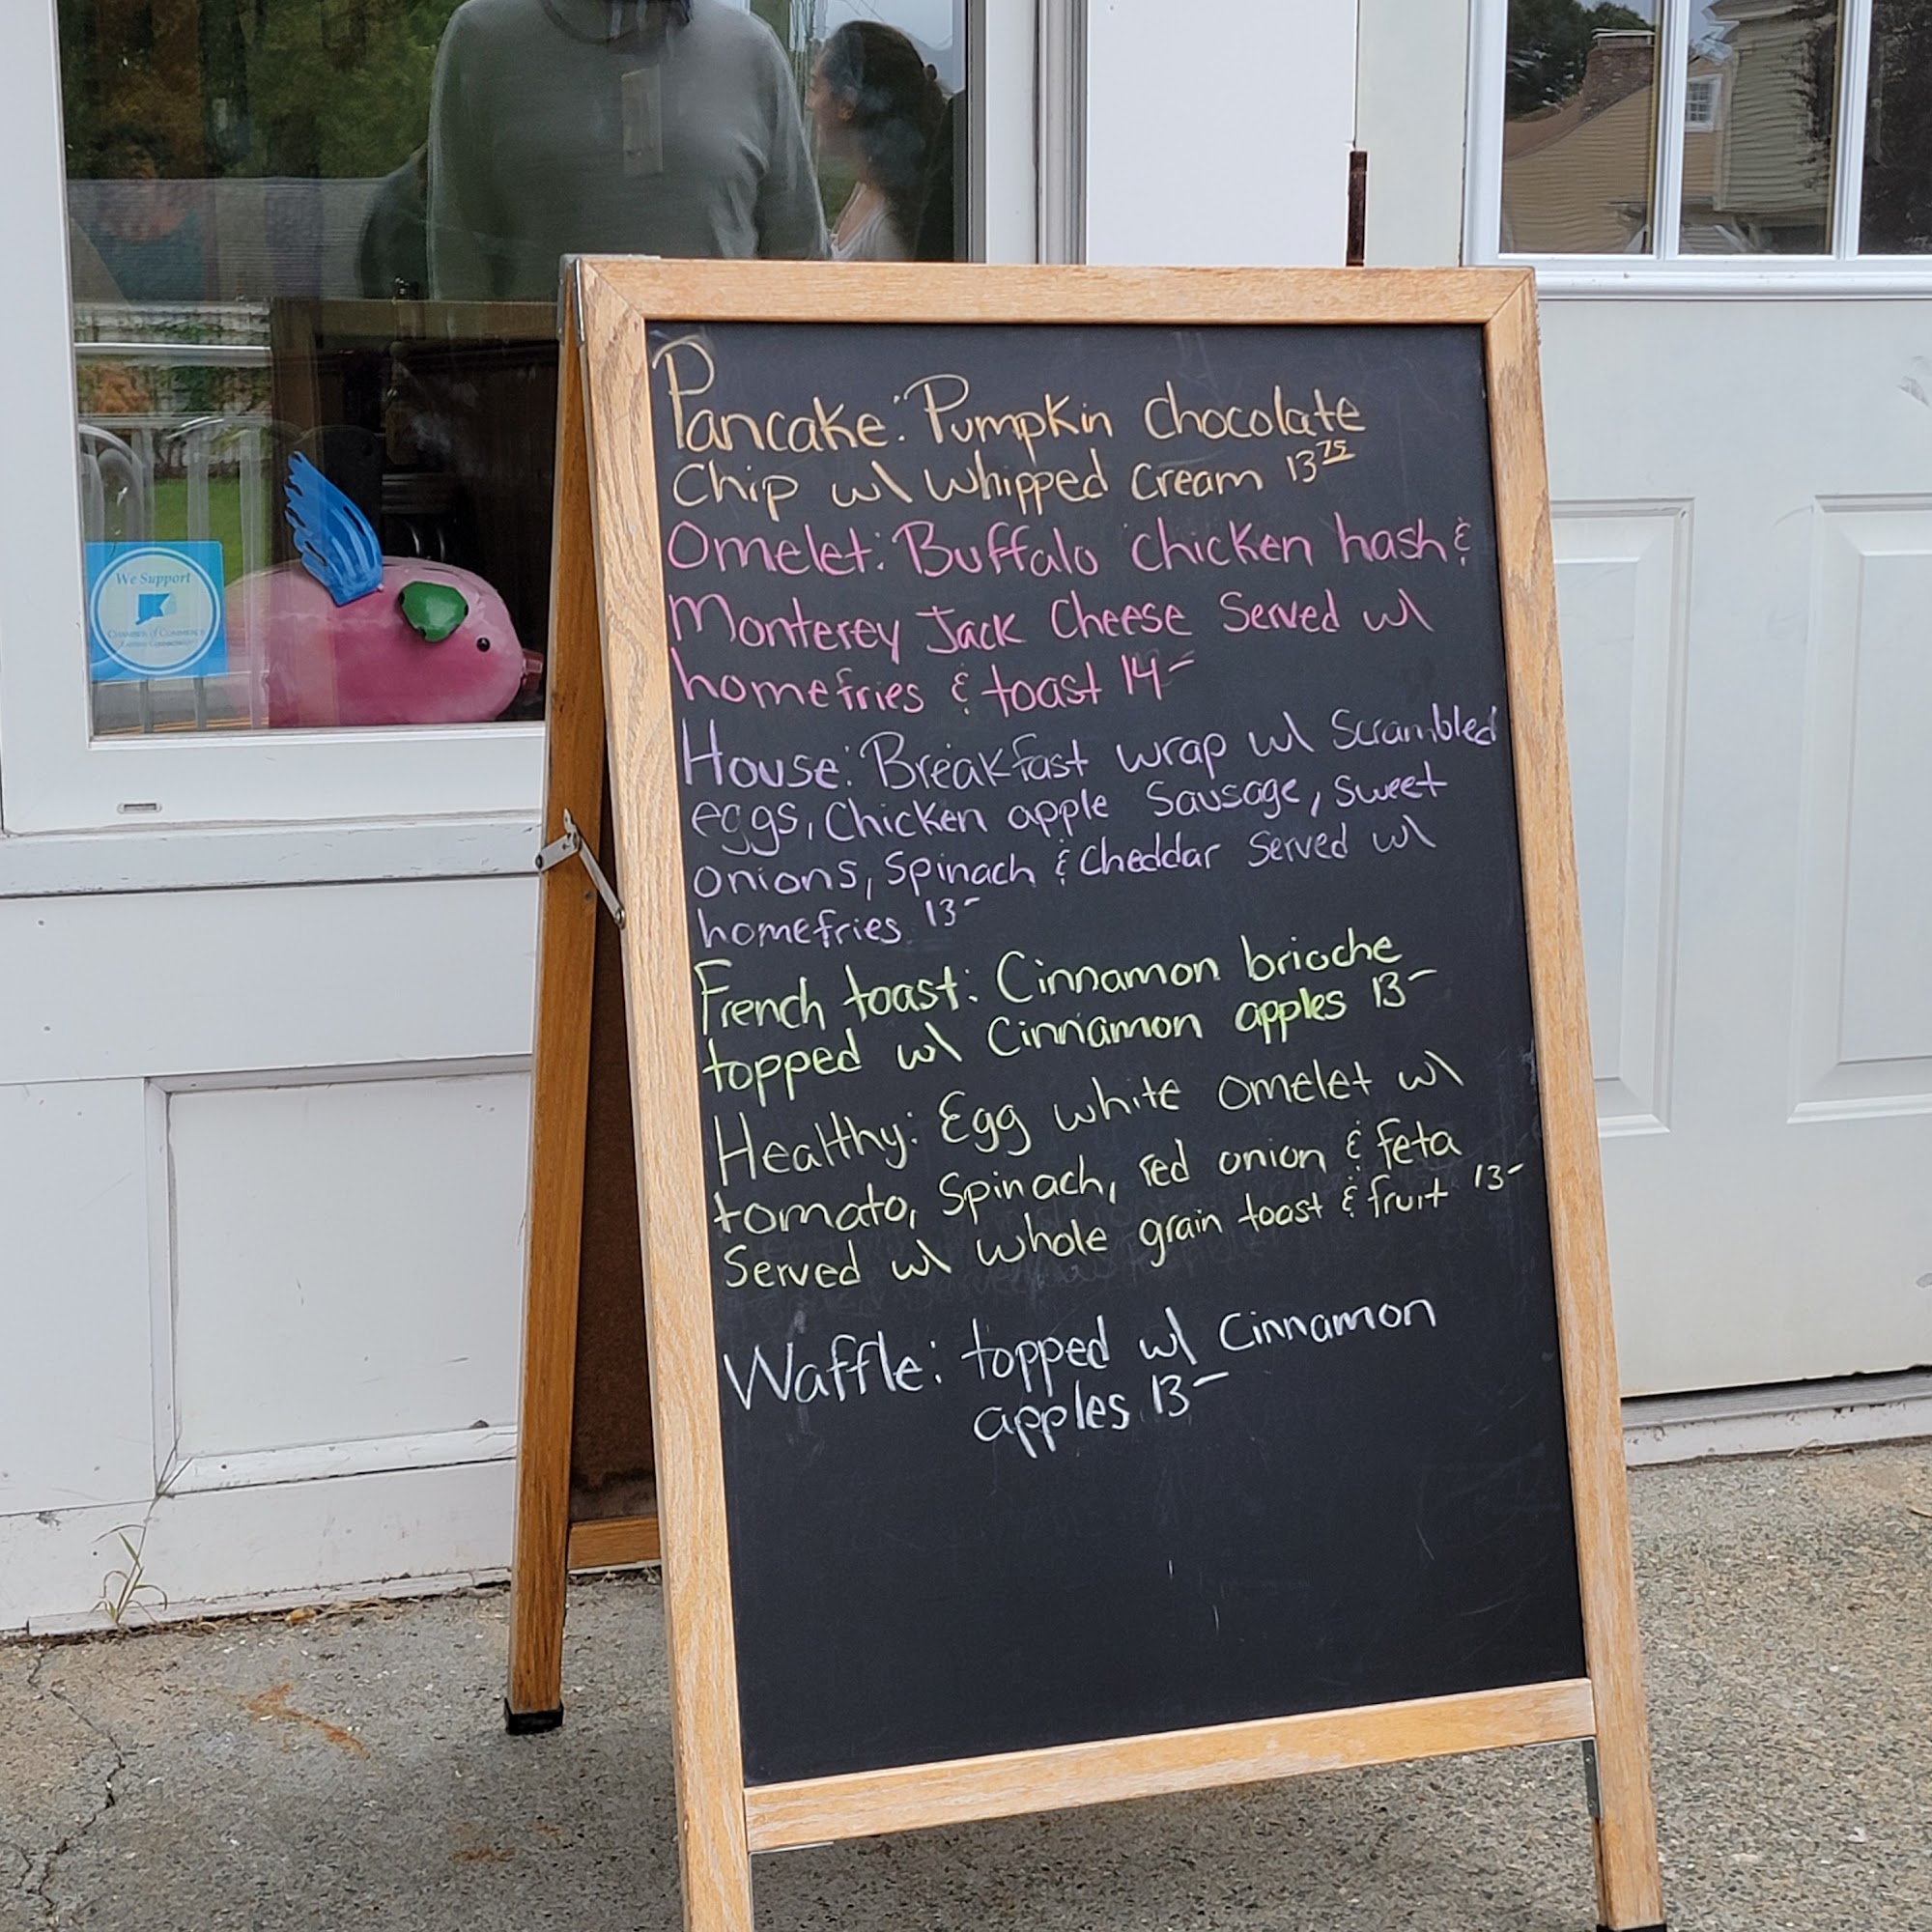 Pancake: Pumpkin chocolate
Chip w/ whipped cream 13 75
Omelet: Buffalo chicken hash &
Monterey Jack Cheese Served w/
homefries & toast 14-
House: Breakfast wrap w/ Scrambled
eggs, Chicken apple Sausage, sweet
onions, Spinach & Cheddar Served w/
homefries 13-
French toast: Cinnamon brioche
topped w/ Cinnamon apples 13-
Healthy: Egg white omelet w/
tomato, Spinach, red onion & feta
Served w/ whole grain toast & fruit 13-
Waffle: topped w/ Cinnamon
apples 13-
We Support
CHAMBER of COMMERCE